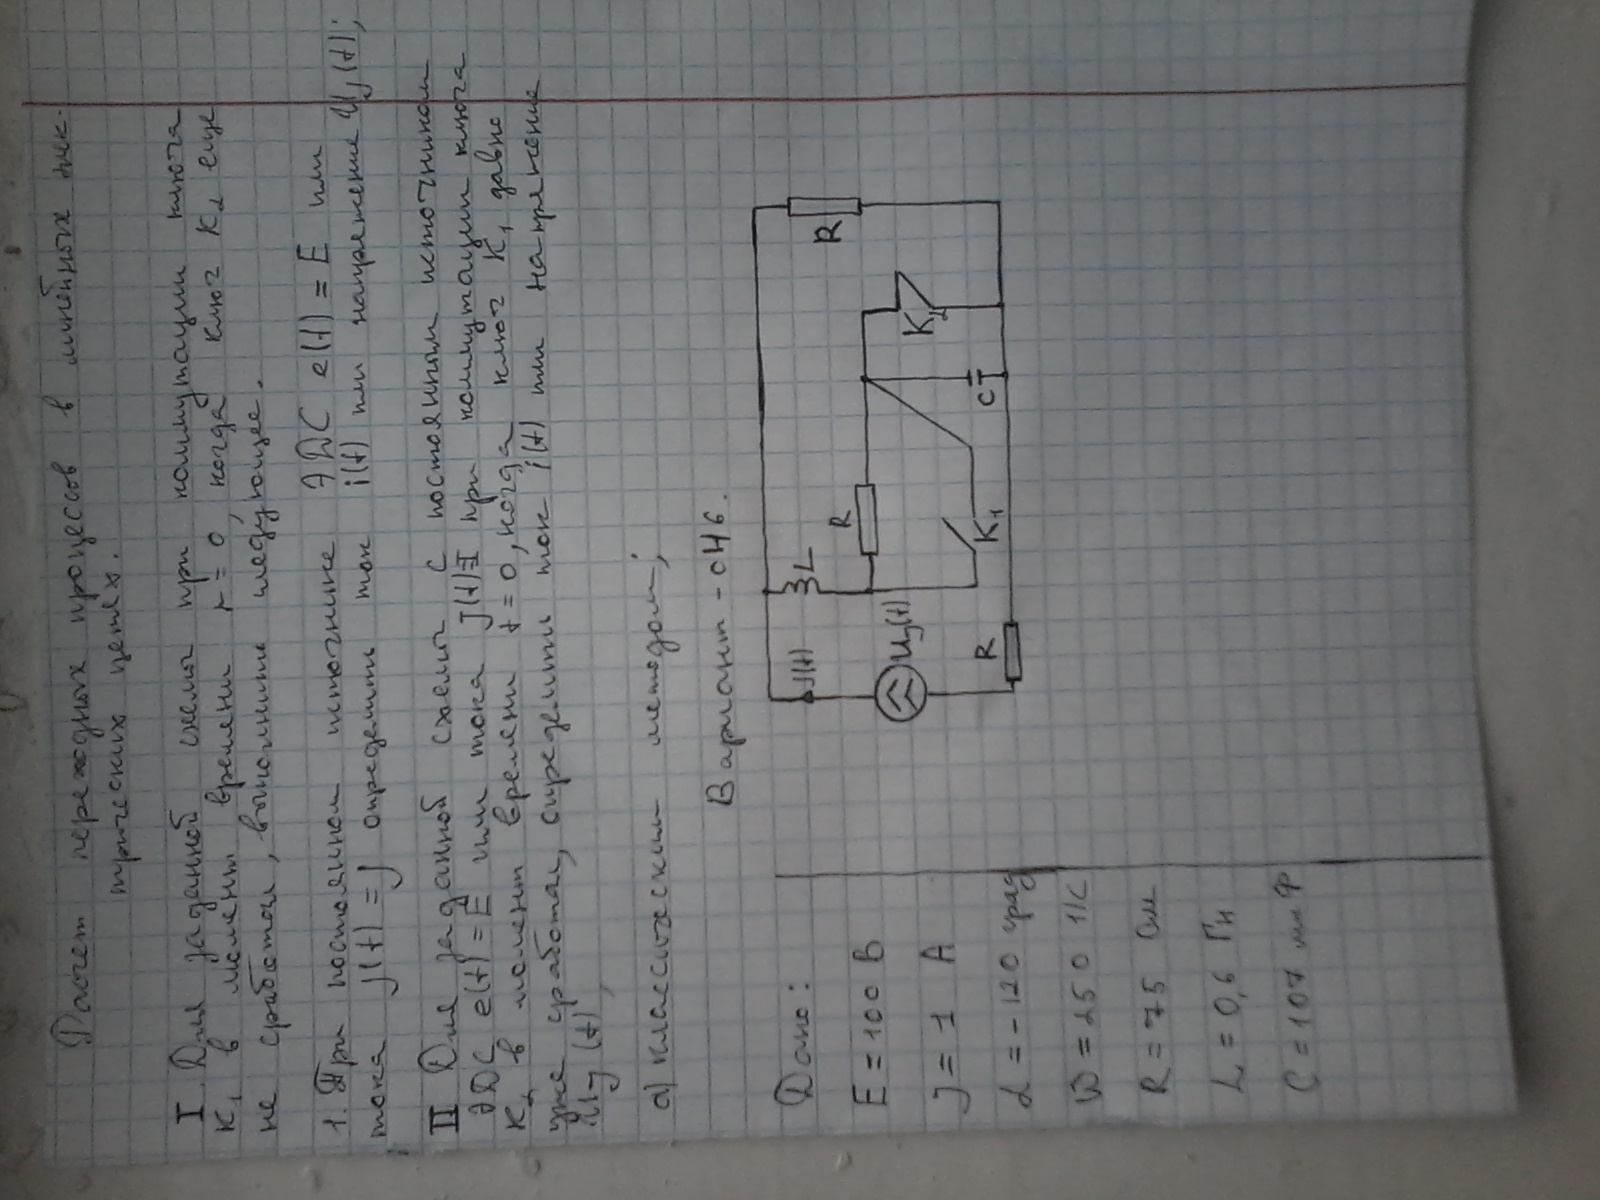 Расчет переходных процессов в линейных элек-
трических цепях.
I. Для заданной схемы при коммутации ключа
K₁ в момент времени t = 0, когда ключ K₂ еще
не сработал, выполнить следующее.
1. При постоянном источнике ЭДС e(t) = E или
тока J(t) = J определить ток i(t) или напряжение U_J(t);
II Для заданной схемы с постоянным источником
ЭДС e(t) = E или тока J(t)=J при коммутации ключа
K₂ в момент времени t = 0, когда ключ K₁ давно
уже сработал, определить ток i(t) или напряжение
U_J(t),
а) классическим методом;
Вариант - 
Дано:
E = 100 В
J = 1 А
α = -120 град
W = 250 1/с
R = 75 Ом
L = 0,6 Гн
C = 107 мкФ
J(t)
U_J(t)
L
R
R
K₁
C
K₂
R